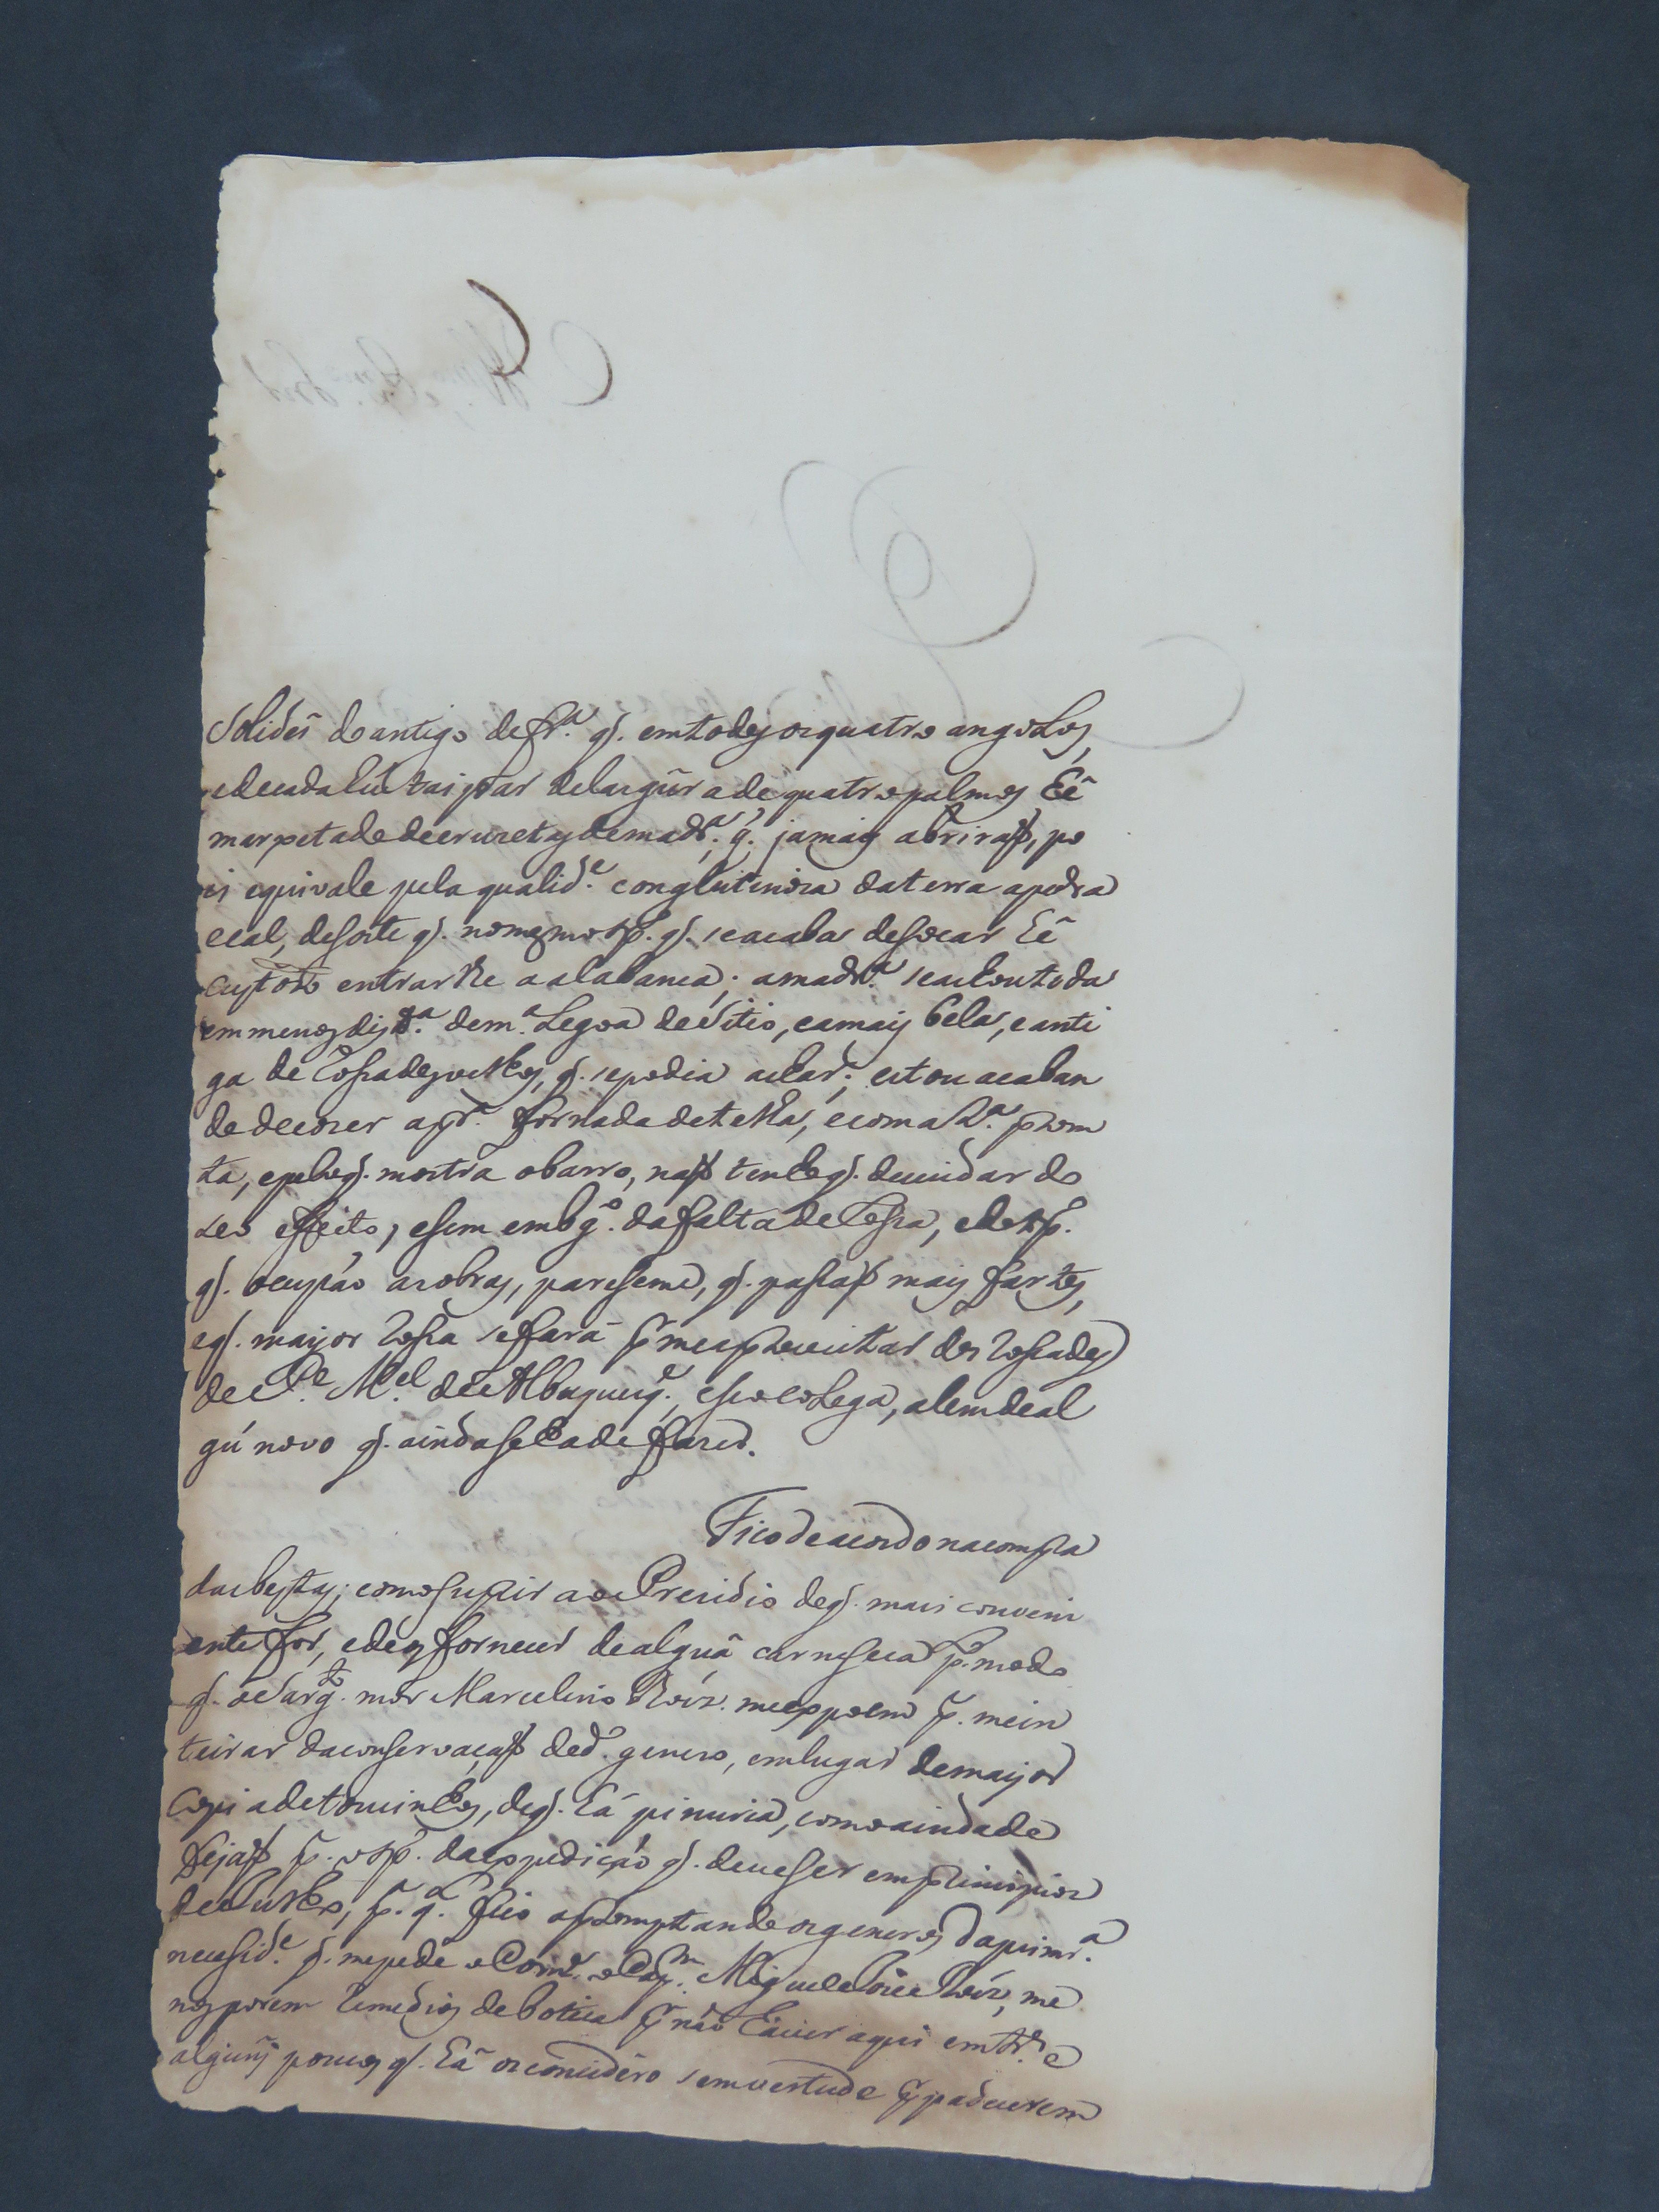 Solidés do antigo de fr.ª q̃. em todos os quatro angolos,
e de cada hú tais par de largura de quatro palmos hé
mas de madr.ª; q̃. jamais abriraõ, po
is equivale pela qualid.e conglutinoza da terra a pedra
ecal, de sorte q̃. no mesmo tp.º q̃. se acaba de socar hé
custozo entrar lhe a alabanca; a madr.ª se achou toda
em menos dist.ª de m.ª Legoa de sitio, e a mais bela, e anti
ga de q̃. se podia achar; estou acaban
do de cozer a pr.ª fornada de telha, e com a 2.ª prom
ta, e pelo q̃. mostra o barro, naõ tenho q̃. duvidar do
seo effeito, e sem emb.gº da falta de e de tp.º
q̃. ocupão as obras, paresseme, q̃. passaõ mais fartos,
e q̃. mayor rossa se fará p.r me aproveitar dos rossados
de P.e M.el de Albuquerq.e, e seo colega, alem de al
gú novo q̃. ainda se ha de fazer.
Fico de acordo na compra
das bestas; como suprir ao Prezidio de q̃. mais conveni
ente for, e de o fornecer de alguã carne seca p.º modo
q̃. o Sarg.to mór Marcelino Roiz. me expoem p.ª me in
teirar da conservaçaõ de d.º genero, em lugar de mayor
copia de toucinhos, de q̃. há pinuria, como ainda de
Feijaõ p.ª o tp.º da expediçáo q̃. deve ser em principios
de Julho, p.ª q̃. fico apromptando os generos da prim.rª
necessid.e q̃. me pede o Com.e o Cap.m Miguel Roiz, me
nos porem remedios de botica p.r não haver aqui em tr.ª e
alguns poucos q̃. há os concidéro sem vertude p.r padecerem